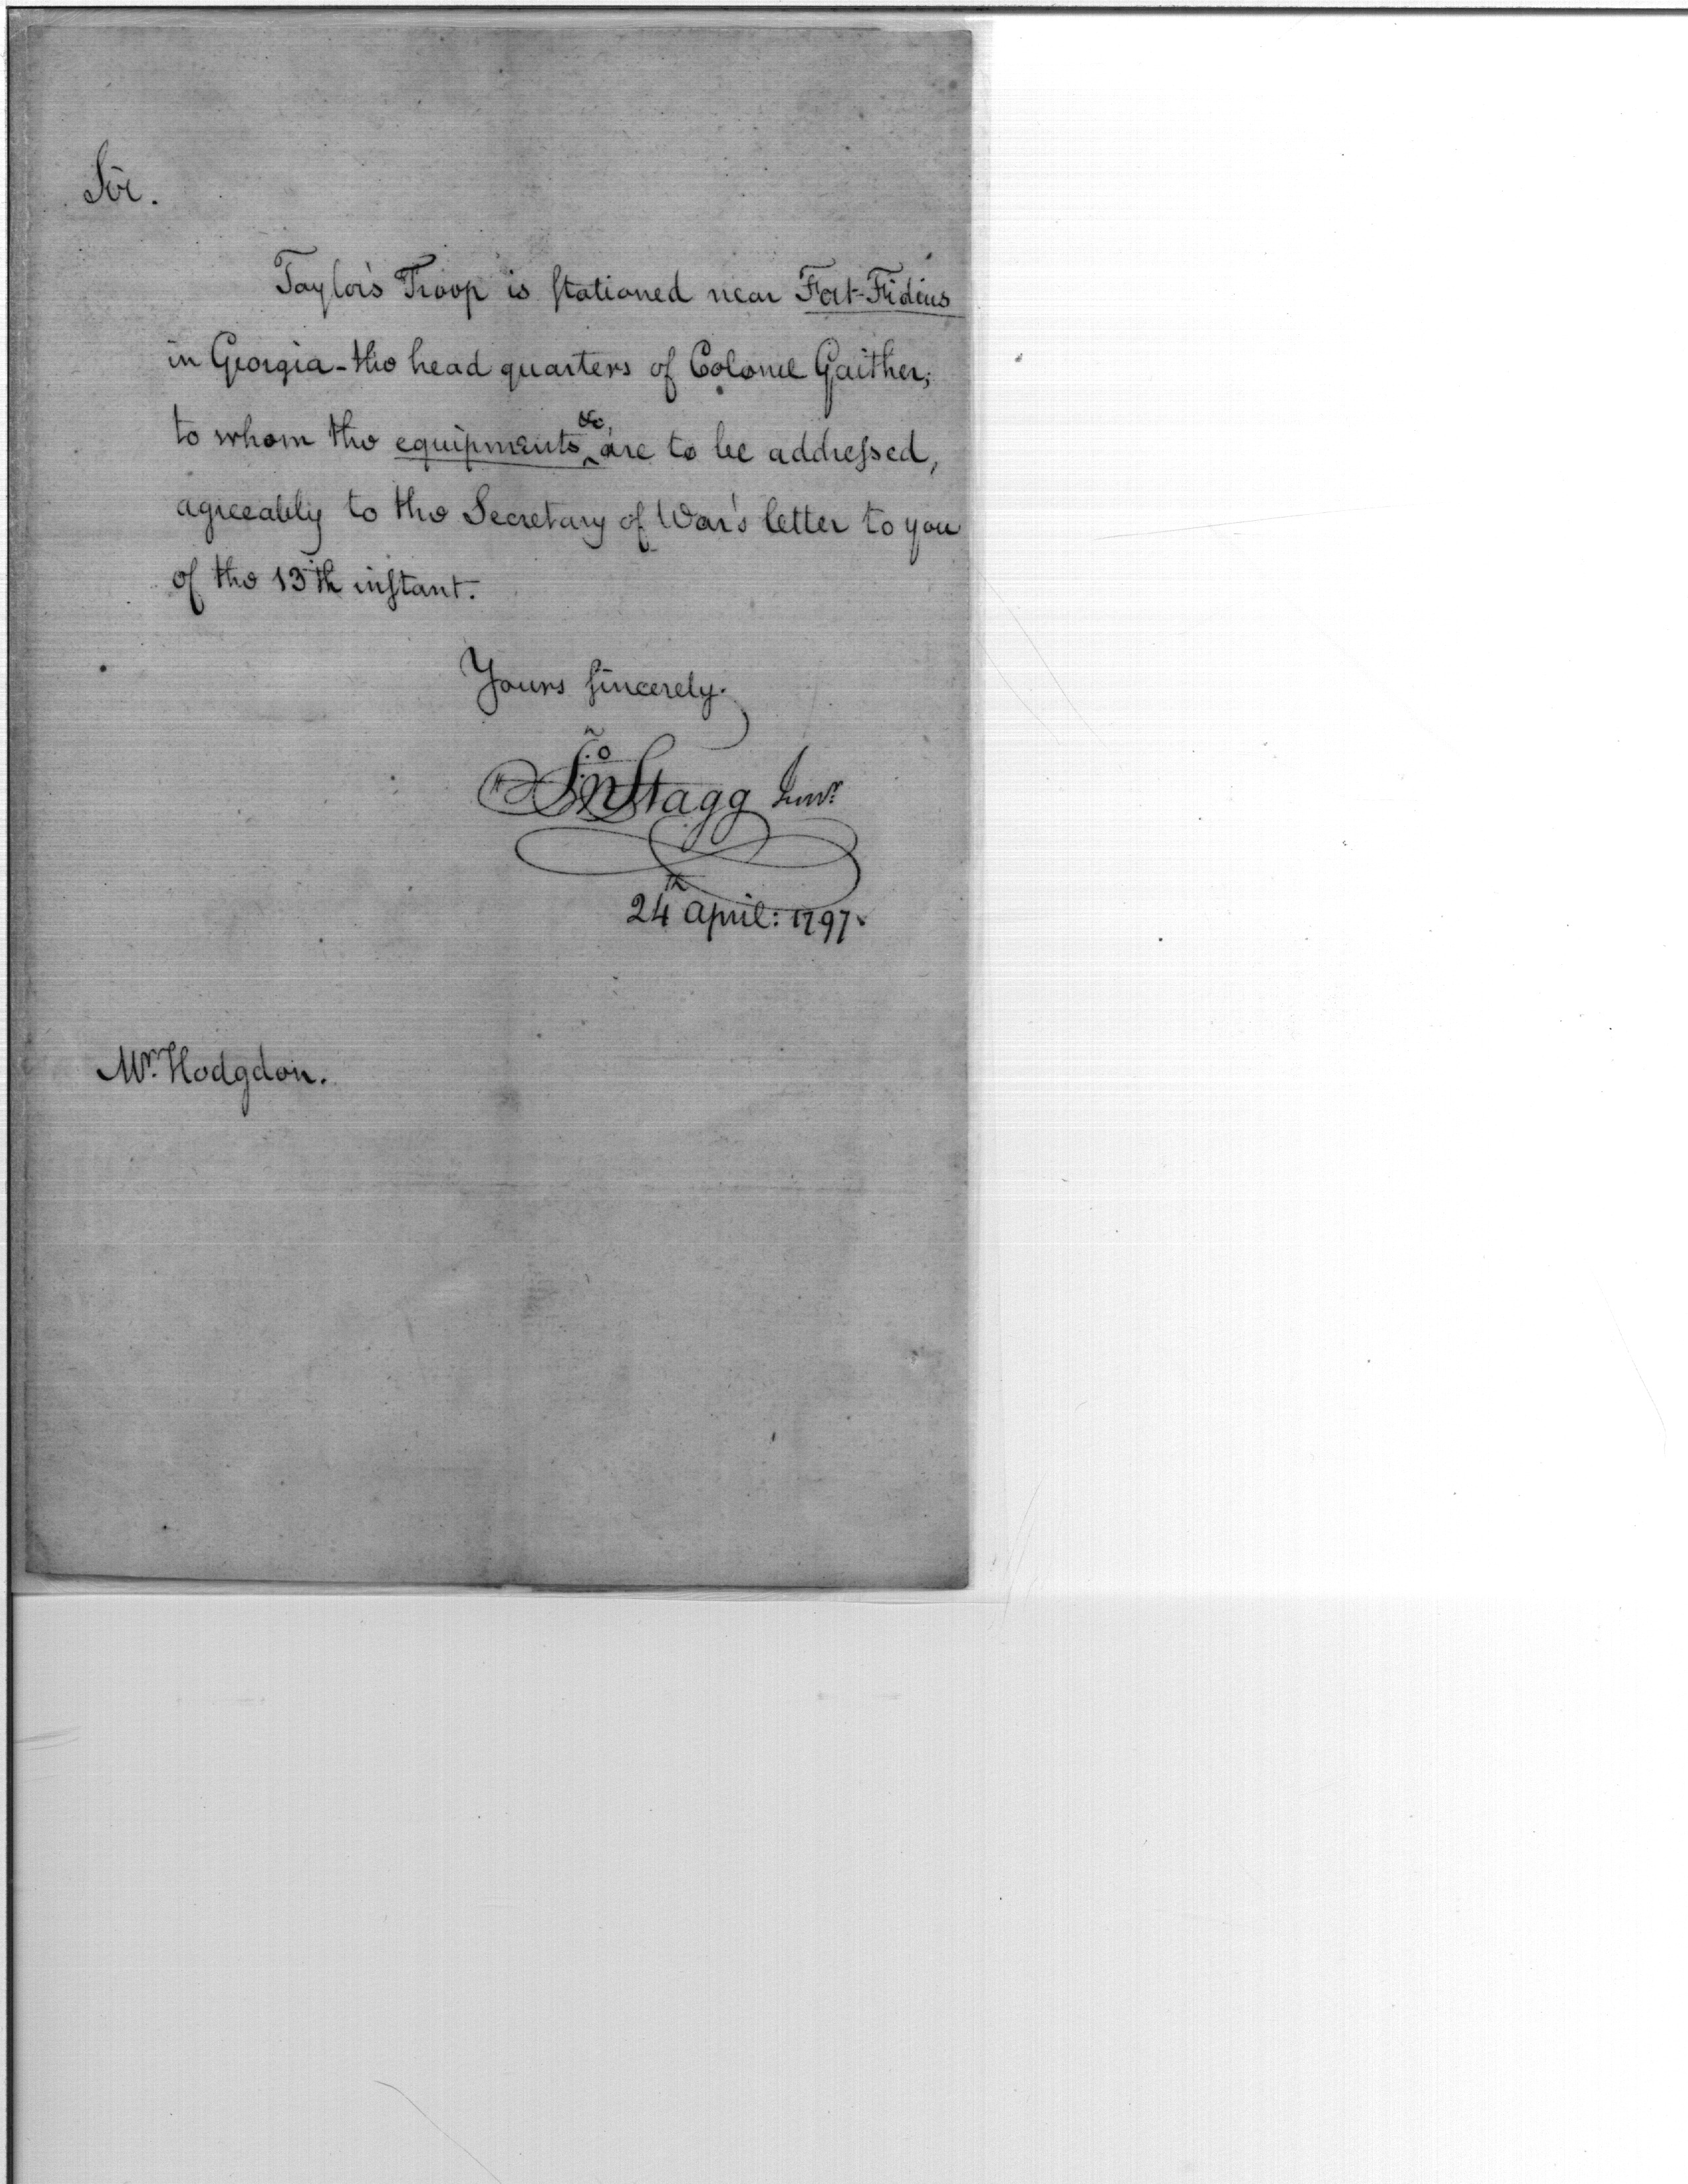 Sir.
Taylor's Troop is stationed near Fort-Fidius
in Georgia - the head quarters of Colonel Gaither;
to whom the equipments &c, are to be addressed,
agreeably to the Secretary of War's letter to you
of the 13th instant.
Yours sincerely.
Jno Stagg Junr.
24th April: 1797.
Mr. Hodgdon.